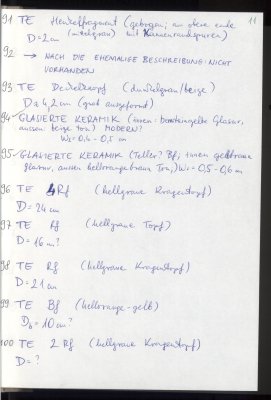 11
91 TE Henkelfragment (gebogen; am obere ende
D=2cm (mittelgrau) mit Kannenrandspuren)
92 → NACH DIE EHEMALIGE BESCHREIBUNG: NICHT
VORHANDEN
93 TE Deckelknopf (dunkelgrau/beige)
D=4,2cm (grob ausgeformt)
94 - GLASIERTE KERAMIK (innen: glasur,
aussen beige ton) MODERN?
W=0,4-0,5 cm
95 - GLASIERTE KERAMIK (Teller? Bf; innen gelbbraun
glasur, aussen hellorangebraun Ton;) W=0,5-0,6 cm
96 TE 4 Rf (hellgraue Kragentopf)
D=24cm
97 TE Rf (hellgraue Topf)
D=16cm?
98 TE Rf (hellgraue Kragentopf)
D=21cm
99 TE Bf (hellorange-gelb)
D=10cm?
100 TE 2 Rf (hellgraue Kragentopf)
D=?